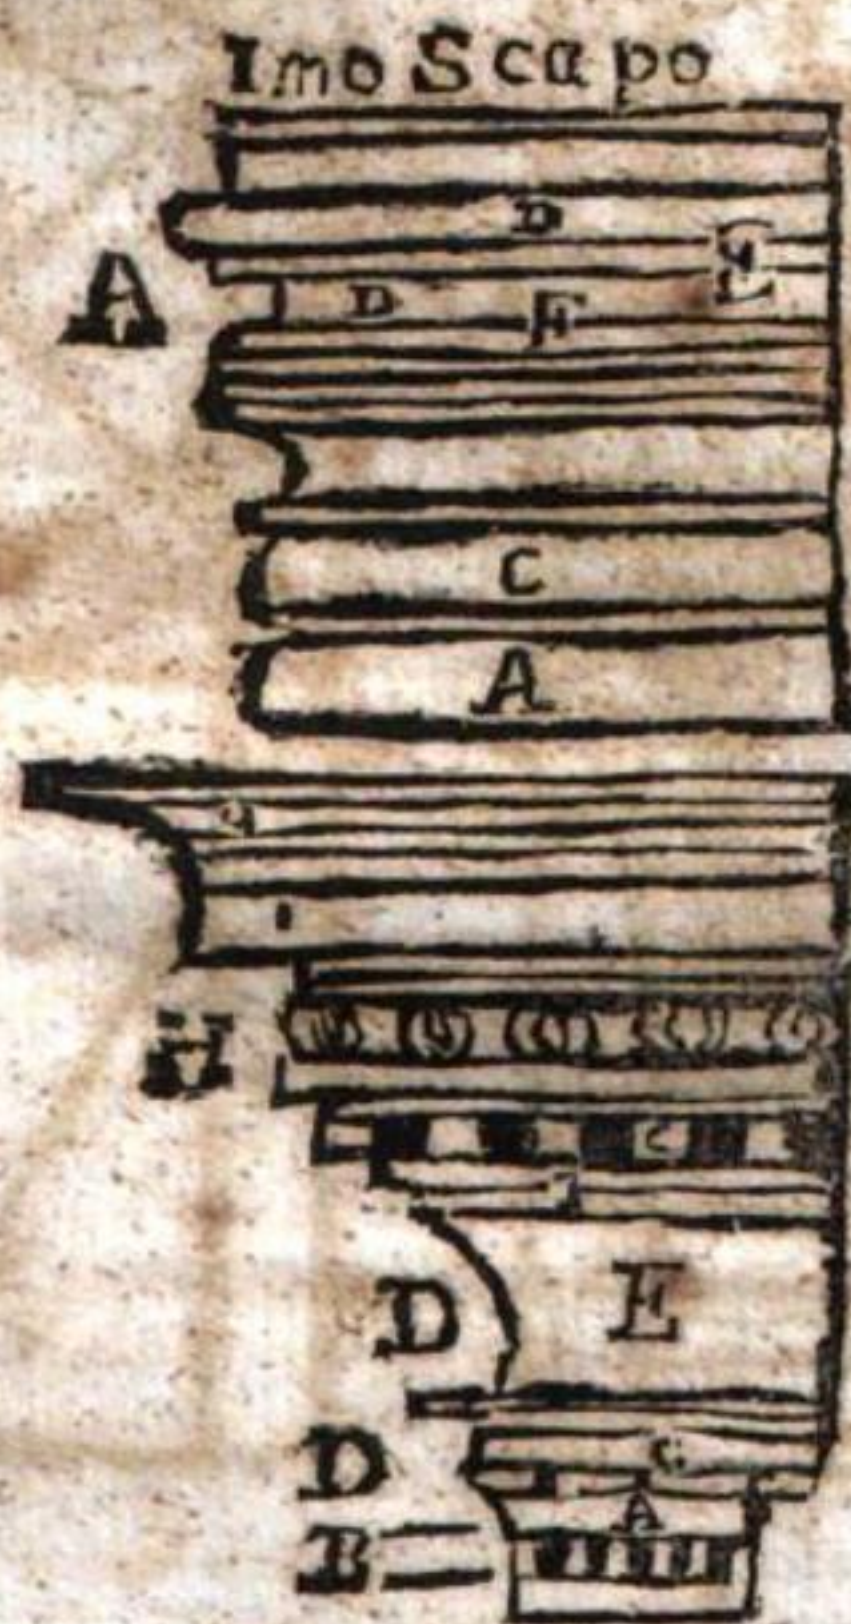 Imo Scapo
D
A
D F
C
A
H
D E
D C
A
B